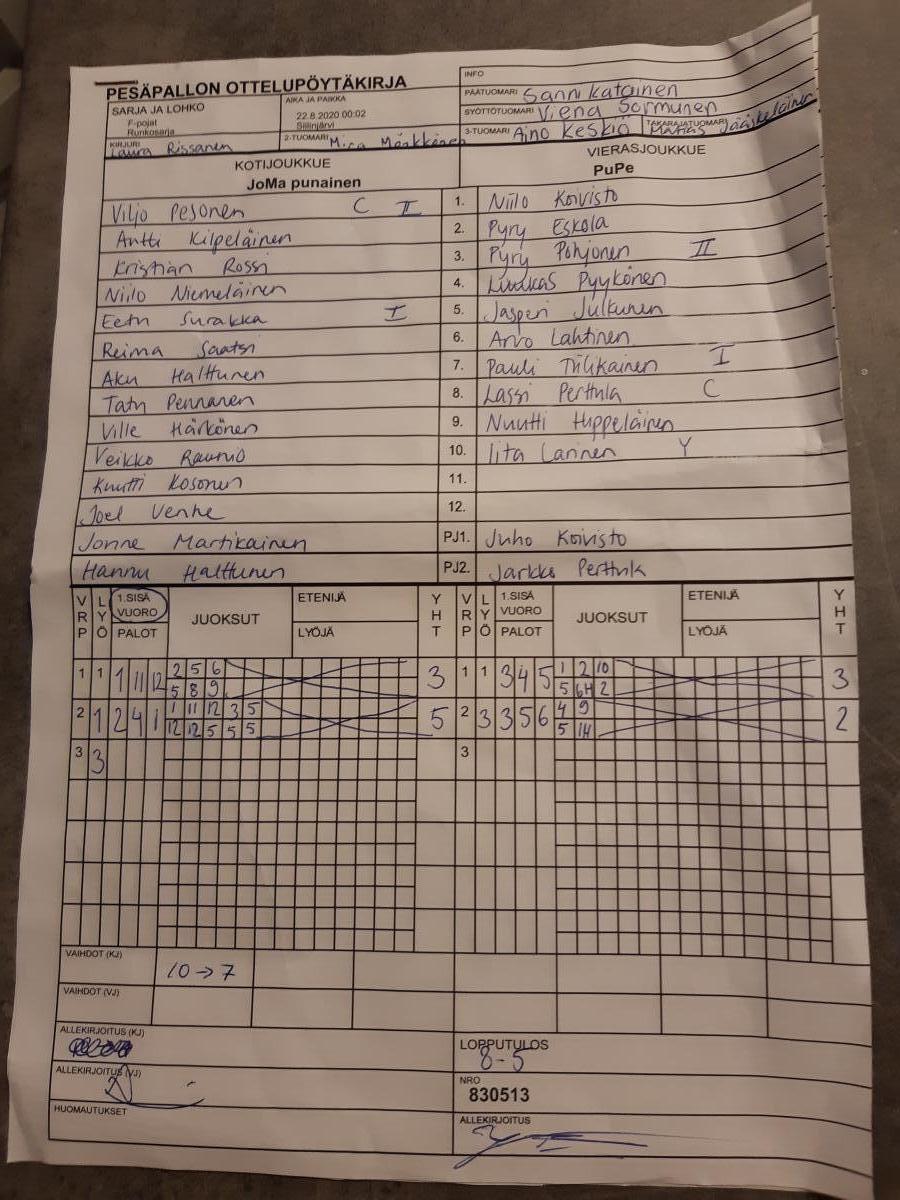 PESÄPALLON OTTELUPÖYTÄKIRJA
INFO
SARJA JA LOHKO
F-pojat
Runkosarja
AIKA JA PAIKKA
22.8.2020 00:02
Siilinjärvi
PÄÄTUOMARI Sanni Katainen
SYÖTTÖTUOMARI Viena Sormunen
KIRJURI Laura Rissanen
2-TUOMARI Mira Mönkkönen
3-TUOMARI Aino Keskiö
TAKARAJATUOMARI Matias Jääskeläinen
KOTIJOUKKUE
JoMa punainen
VIERASJOUKKUE
PuPe
Viljo Pesonen C II 1. Niilo Koivisto
Antti Kilpeläinen 2. Pyry Eskola
Kristian Rossi 3. Pyry Pohjonen II
Niilo Niemeläinen 4. Luukas Pyykönen
Eetu Surakka I 5. Jasperi Julkunen
Reima Saatsi 6. Arvo Lahtinen
Aku Halttunen 7. Pauli Tiilikainen I
Tatu Pennanen 8. Lassi Perttula C
Ville Härkönen 9. Nuutti Huppeläinen
Veikko Raunio 10. Iita Larinen Y
Kuutti Kosonen 11.
Joel Venhe 12.
Jonne Martikainen PJ1. Juho Koivisto
Hannu Halttunen PJ2. Jarkko Perttula
VRP LYÖ 1.SISÄ VUORO PALOT JUOKSUT ETENIJÄ LYÖJÄ YHT VRP LYÖ 1.SISÄ VUORO PALOT JUOKSUT ETENIJÄ LYÖJÄ YHT
1 1 1 11 12 2 5 6 3 1 1 3 4 5 1 2 10 3
5 8 9 5 6H 2
2 1 2 4 1 1 11 12 3 5 5 2 3 3 5 6 4 9 2
12 12 5 5 5 5 1H
3 3 3
VAIHDOT (KJ) 10→7
VAIHDOT (VJ)
ALLEKIRJOITUS (KJ)
LOPPUTULOS
8-5
ALLEKIRJOITUS (VJ)
NRO
830513
HUOMAUTUKSET
ALLEKIRJOITUS